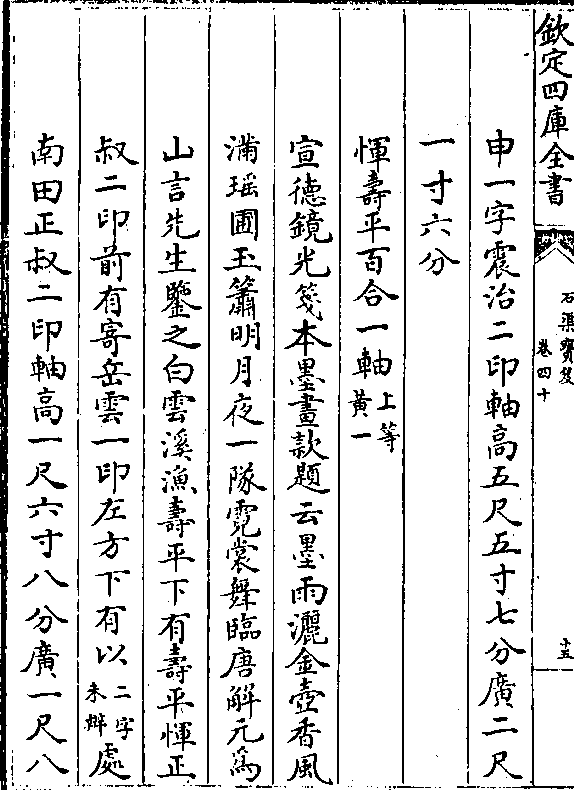 欽定四庫全書
石渠寶笈
卷四十
十五
申一字震治二印軸高五尺五寸七分廣二尺
一寸六分
惲壽平百合一軸上等黃一
宣德鏡光箋本墨畫款題云墨雨灑金壺香風
滿瑶圃玉簫明月夜一隊霓裳舞臨唐解元爲
山言先生鑒之白雲溪漁壽平下有壽平惲正
叔二印前有寄岳雲一印左方下有以二字未辦處
南田正叔二印軸高一尺六寸八分廣一尺八